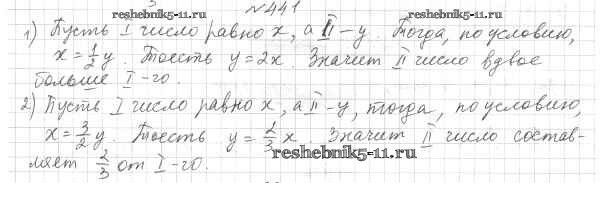 reshebnik5-11.ru
№441
1) Пусть I число равно x, а II – y. Тогда, по условию,
x = 1/2 y. Тоесть y = 2x. Значит II число вдвое
больше I-го.
2) Пусть I число равно x, а II – y, тогда, по условию,
x = 3/2 y. Тоесть y = 2/3 x. Значит II число состав-
ляет 2/3 от I-го.
reshebnik5-11.ru